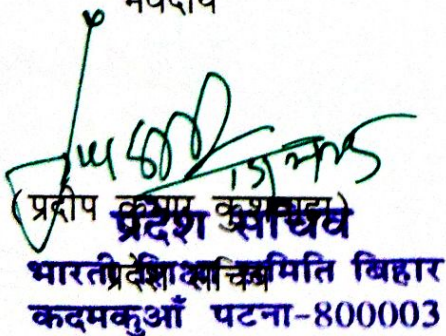 भवदीय
(प्रदीप कुमार कुशवाहा)
प्रदेश सचिव
प्रदेश सचिव
भारती शिक्षा समिति बिहार
कदमकुआँ पटना-800003